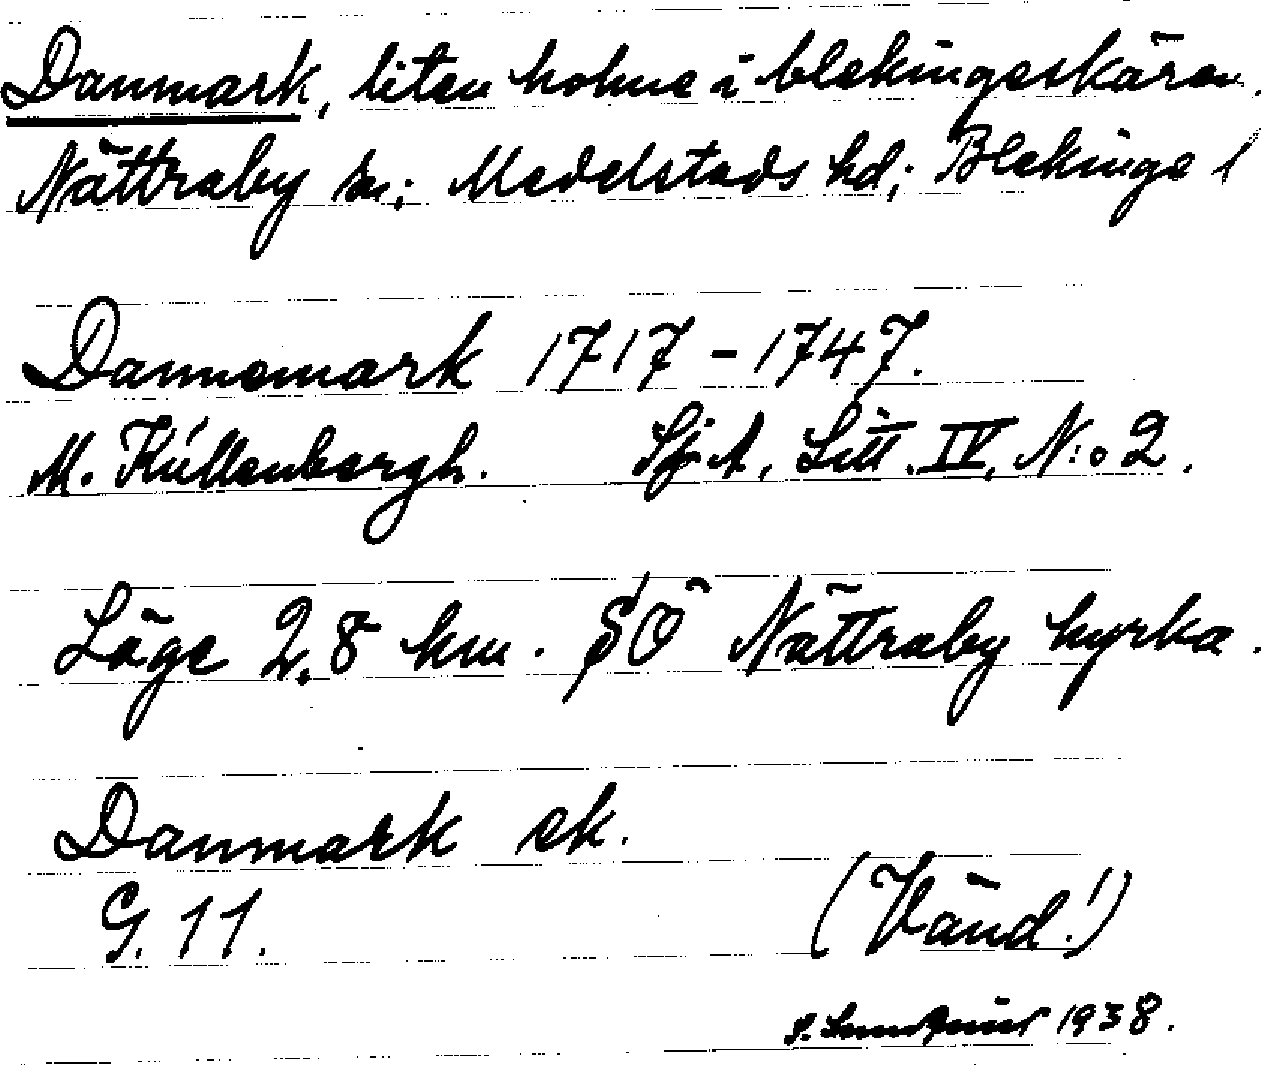 Danmark, liten holme i blekingeskären.
Nättraby sn; Medelstads hd; Blekinge l
Dannemark 1717-1747.
M. Küllenbergh. Sj.A, Litt. IV, N:o 2.
Läge 2.8 km. SÖ Nättraby kyrka.
Danmark ek.
G. 11.
(Vänd!)
1938.